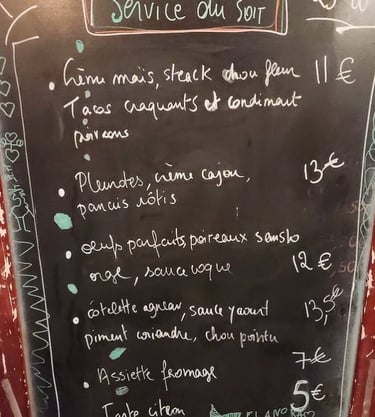 Service du SOIR
Crème maïs, steack chou fleur 11 €
Tacos craquants et condiment
poivrons
Pleurotes, crème cajou, 13 €
panais rôtis
oeufs parfaits, poireaux
orge, sauce coque 12 €
côtelette agneau, sauce yaourt 13,5€
piment coriandre, chou pointu
Assiette fromage 7€
Tarte citron 5€